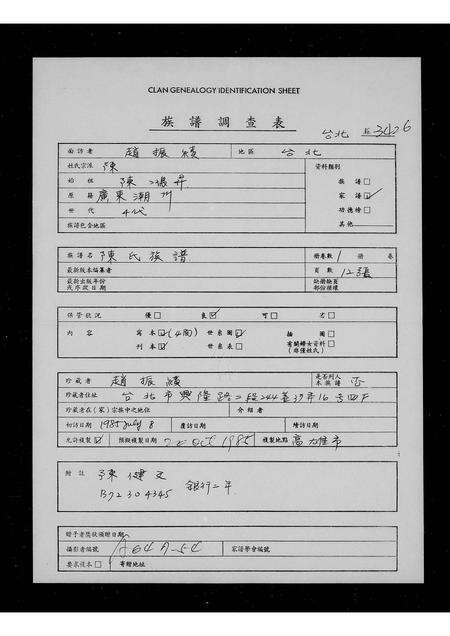 CLAN GENEALOGY IDENTIFICATION SHEET
族譜調查表
台北 3426
面訪者 趙振績 地區 台北
姓氏宗派 陳 資料類別
始祖 陳 昇 族譜□
原籍 廣東潮州 家譜☑
世代 4代 功德榜□
族譜包含地區 其他
族譜名 陳氏族譜 冊卷數 1 冊 卷
最新版本編纂者 頁數 12張
最新出版年份或序跋日期 缺冊缺頁部份種標
保管狀況 優□ 良☑ 可□ 劣□
內容 寫本☑ 世系圖☑ 插圖□
刊本☑ 世系表□ 有關婦女資料□ (非僅姓氏)
珍藏者 趙振績 是否列入本族譜 否
珍藏者住址 台北市興隆路二段244巷39弄16号四F
珍藏者在(家)宗族中之地位 介紹者
初訪日期 1985 July 8 覆訪日期 續訪日期
允許複製☑ 預擬複製日期 20 Oct 1985 複製地點 高雄市
附註 陳健文
B72304345
贈予者獎狀頒贈日期
攝影者編號 A64A-54 家譜學會編號
要求佳本□ 寄贈地址